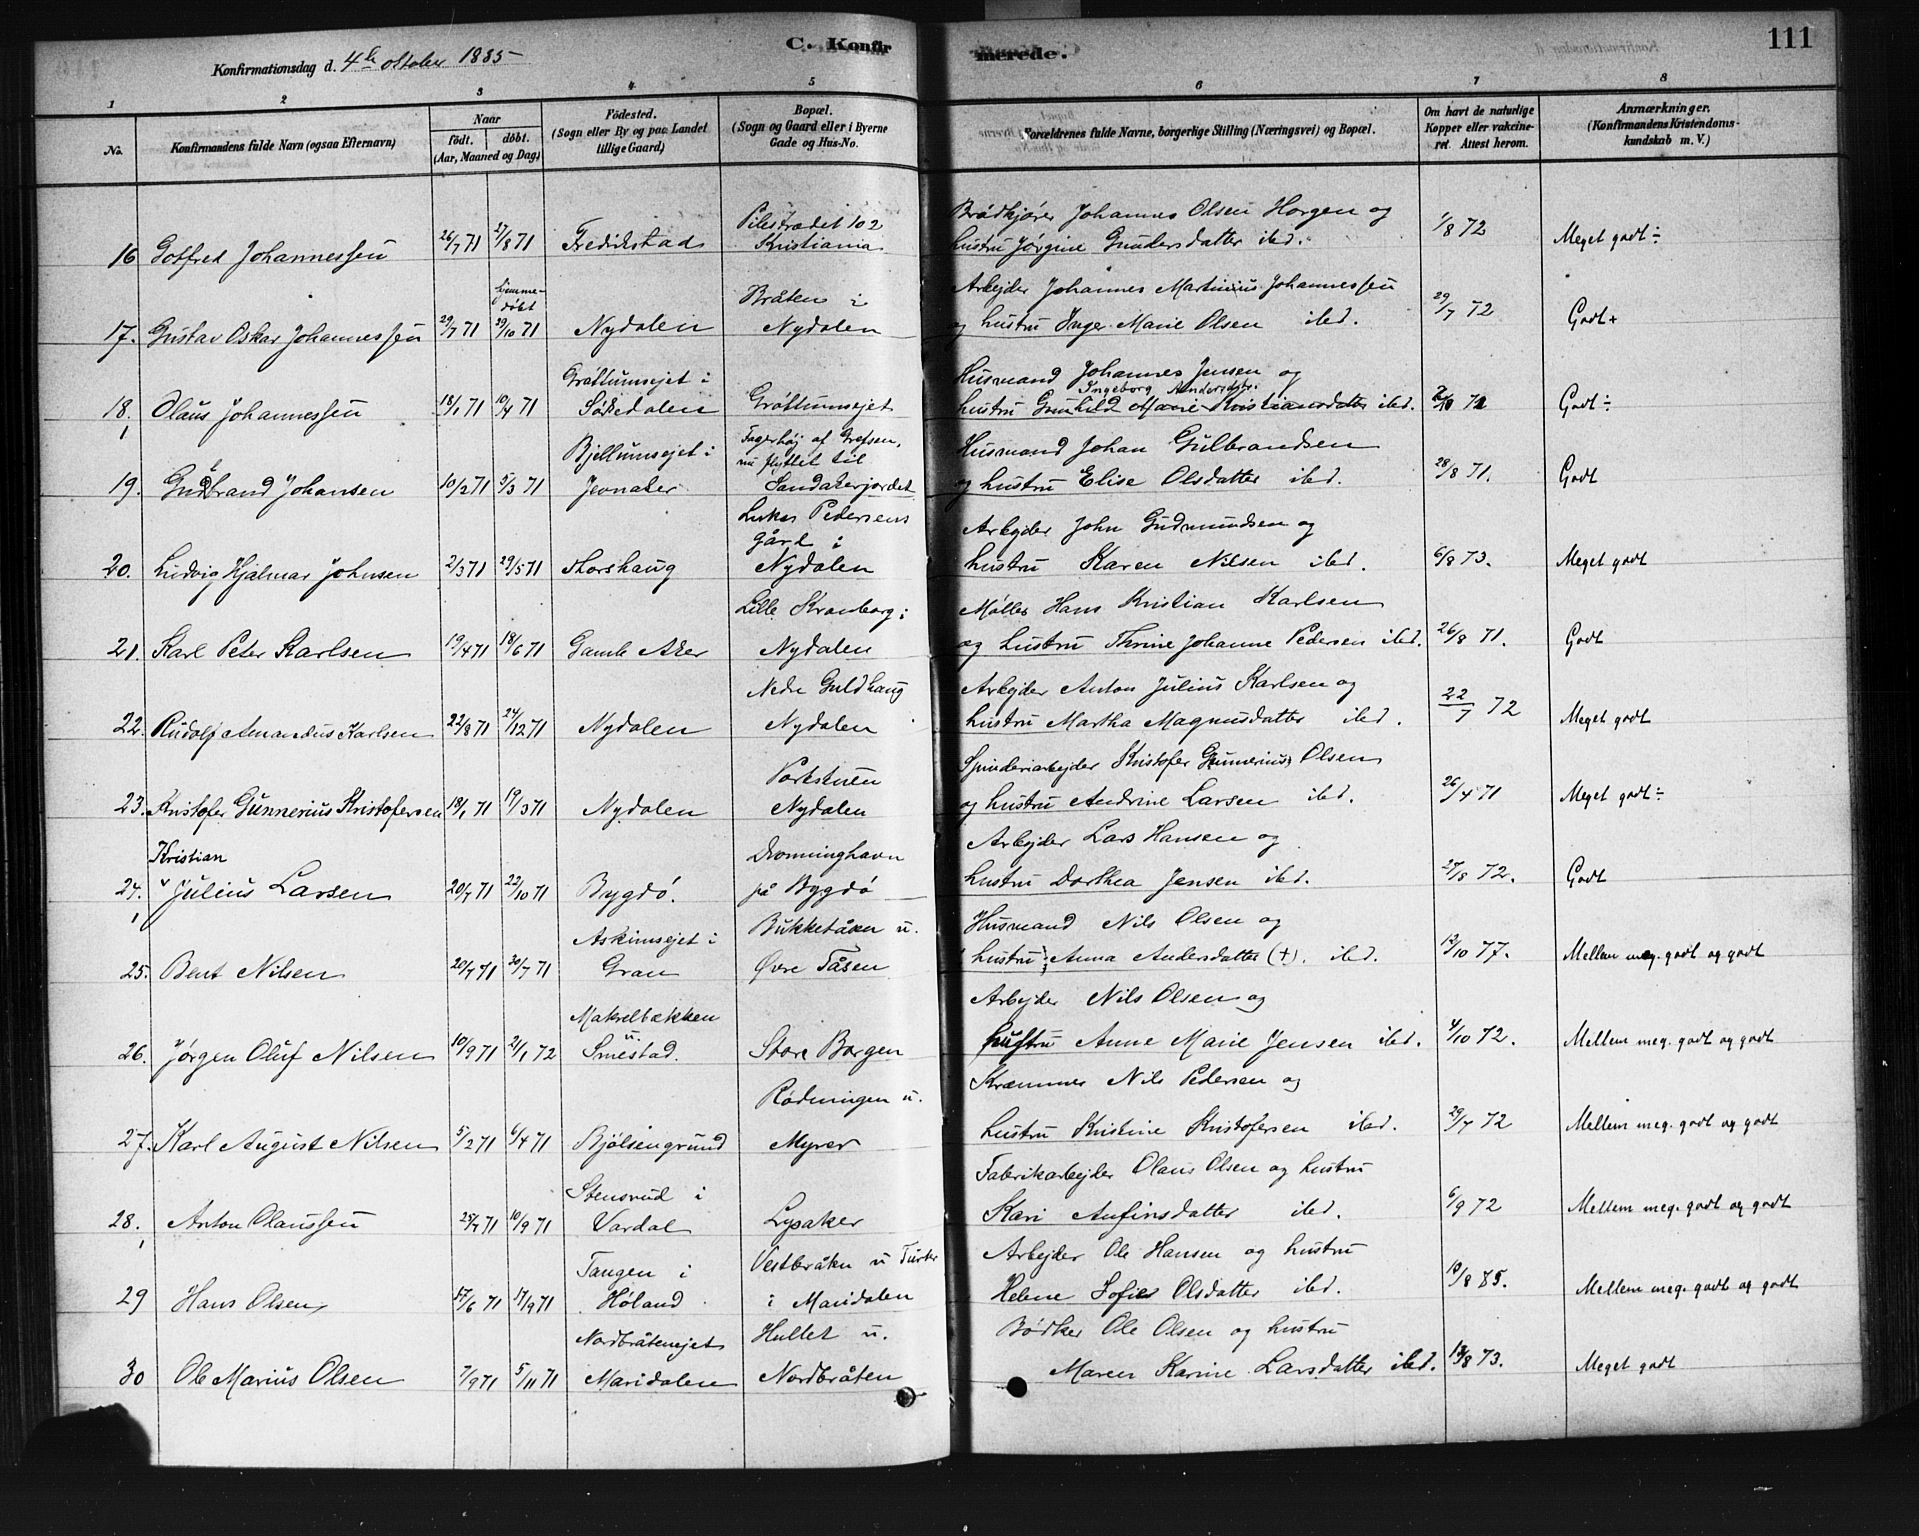 C. Konfirmerede.
111
Konfirmationsdag d. 4de oktober 1885
1 2 3 4 5 6 7 8
No.
Konfirmandens fulde Navn (ogsaa Efternavn)
Naar
født. døbt.
(Aar, Maaned og Dag)
Fødested.
(Sogn eller By og paa Landet
tillige Gaard)
Bopæl.
(Sogn og Gaard eller i Byerne
Gade og Hus-No.
Forældrenes fulde Navne, borgerlige Stilling (Næringsvei) og Bopæl.
Om havt de naturlige
Kopper eller vakcine-
ret. Attest herom.
Anmærkninger.
(Konfirmandens Kristendoms-
kundskab m. V.)
Pilestrædet 102 Brødkjører Johannes Olsen Horgen og
16 Gotfred Johannessen 26/7 71 27/8 71 Fredrikstad Kristiania hustru Jørgine Gundersdatter ibd. 1/8 72 Meget godt ÷
hjemme-
døbt Bråten i Arbejder Johannes Martinius Johannessen
17. Gustav Oskar Johannessen 29/7 71 29/10 71 Nydalen Nydalen og hustru Inger Marie Olsen ibd. 29/7 72 Godt +
Grøttumsejet i Husmand Johannes Jensen og
Ingeborg Andersdtr.
18. Olaus Johannessen 18/1 71 10/4 71 Sørkedalen Grøttumsejet hustru Gunhild Marie Kristiansdatter ibd. Godt ÷
Bjellumsejet i Fagerhøj af Grefsen, Husmand Johan Gulbrandsen
nu flyttet til
19. Gudbrand Johansen 10/2 71 5/3 71 Jevnaker Sandakerjordet og hustru Elise Olsdatter ibd. 28/8 71. Godt
Lukas Pedersens Arbejder John Gudmundsen og
gård i
20. Ludvig Hjalmar Johnsen 2/3 71 29/5 71 Thorshaug Nydalen hustru Karen Nilsen ibd. 6/8 73. Meget godt
Lille Kronborg i Møller Hans Kristian Karlsen
21. Karl Peter Karlsen 19/4 71 18/6 71 Gamle Aker Nydalen og hustru Thrine Johanne Pedersen ibd. 26/8 71. Godt
Nedre Guldhaug Arbejder Anton Julius Karlsen og
22. Rudolf Amandus Karlsen 22/8 71 24/12 71 Nydalen Nydalen hustru Martha Magnusdatter ibd. 22/7 72 Meget godt
Portstuen Spinderiarbejder Kristofer Gunnerius Olsen
23. Kristofer Gunnerius Kristofersen 18/1 71 19/3 71 Nydalen Nydalen og hustru Andrine Larsen ibd. 26/4 71 Meget godt ÷
Kristian Dronninghavn Arbejder Lars Hansen og
24. Julius Larsen 20/7 71 22/10 71 Bygdø. på Bygdø hustru Dorthea Jensen ibd. 27/8 72. Godt
Askimsejet i Bukketåken u. Husmand Nils Olsen og
25. Bent Nilsen 20/7 71 30/7 71 Gran Øvre Tåsen hustru Anna Andersdatter (+). ibd. 12/10 77. Mellem meg. godt og godt
Makrelbækken Arbejder Nils Olsen og
u.
26. Jørgen Oluf Nilsen 10/9 71 21/1 72 Smestad. Store Borgen hustru Anne Marie Jensen ibd. 4/10 72. Mellem meg. godt og godt
Rødningen u. Kræmmer Nils Pedersen og
27. Karl August Nilsen 5/2 71 6/4 71 Bjølsengrund Myrer hustru Kristine Kristofersen ibd. 29/7 72 Mellem meg. godt og godt
Stensrud i Fabrikarbejder Olaus Olsen og hustru
28. Anton Olaussen 25/7 71 10/9 71 Vardal Lysaker Kari Anfinsdatter ibd. 6/9 72 Mellem meg. godt og godt
Tangen i Vestbråten u Turter Arbejder Ole Hansen og hustru
29 Hans Olsen 17/6 71 17/9 71 Høland i Maridalen Helene Sofie Olsdatter ibd. 10/8 85. Mellem meg. godt og godt
Nordbråtenejet Hullet u. Bødker Ole Olsen og hustru
30 Ole Marius Olsen 7/9 71 5/11 71 Maridalen Nordbråten Maren Karine Larsdatter ibd. 13/8 73. Meget godt